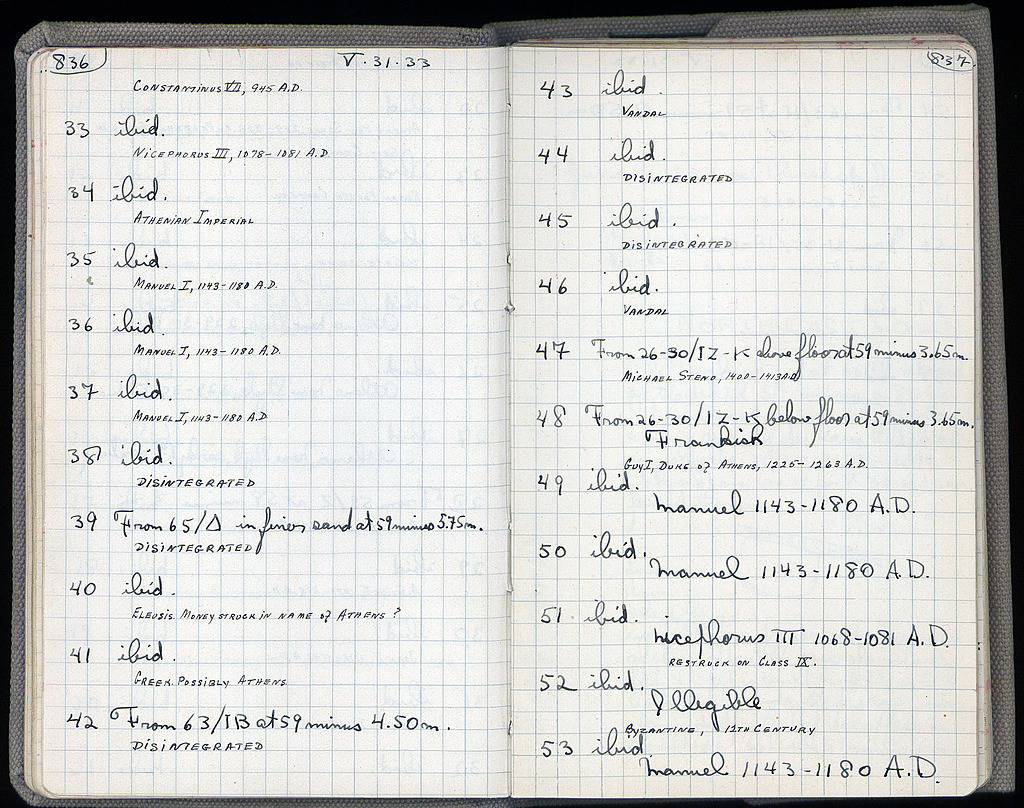 836
V·31·33
CONSTANTINUS VII, 945 A.D.
33 ibid.
NICEPHORUS III, 1078-1081 A.D
34 ibid.
ATHENIAN IMPERIAL
35 ibid.
MANUEL I, 1143-1180 A.D.
36 ibid.
MANUEL I, 1143-1180 A.D.
37 ibid.
MANUEL I, 1143-1180 A.D
38 ibid.
DISINTEGRATED
39 From 65/Δ in finer sand at 59 minus 5.75m.
DISINTEGRATED
40 ibid.
ELEUSIS. MONEY STRUCK IN NAME of ATHENS?
41 ibid.
GREEK. POSSIBLY ATHENS.
42 From 63/IB at 59 minus 4.50m.
DISINTEGRATED
837
43 ibid.
VANDAL
44 ibid.
DISINTEGRATED
45 ibid.
DISINTEGRATED
46 ibid.
VANDAL
47 From 26-30/IZ-K above floor at 59 minus 3.65m
MICHAEL STENO, 1400-1413 A.D
48 From 26-30/IZ-K below floor at 59 minus 3.65m.
Frankish
GUY I, DUKE of ATHENS, 1225-1263 A.D.
49 ibid.
Manuel 1143-1180 A.D.
50 ibid.
Manuel 1143-1180 A.D.
51 ibid.
Nicephorus III 1068-1081 A.D.
RESTRUCK ON CLASS IX.
52 ibid.
Illegible
BYZANTINE, 12TH CENTURY
53 ibid
Manuel 1143-1180 A.D.